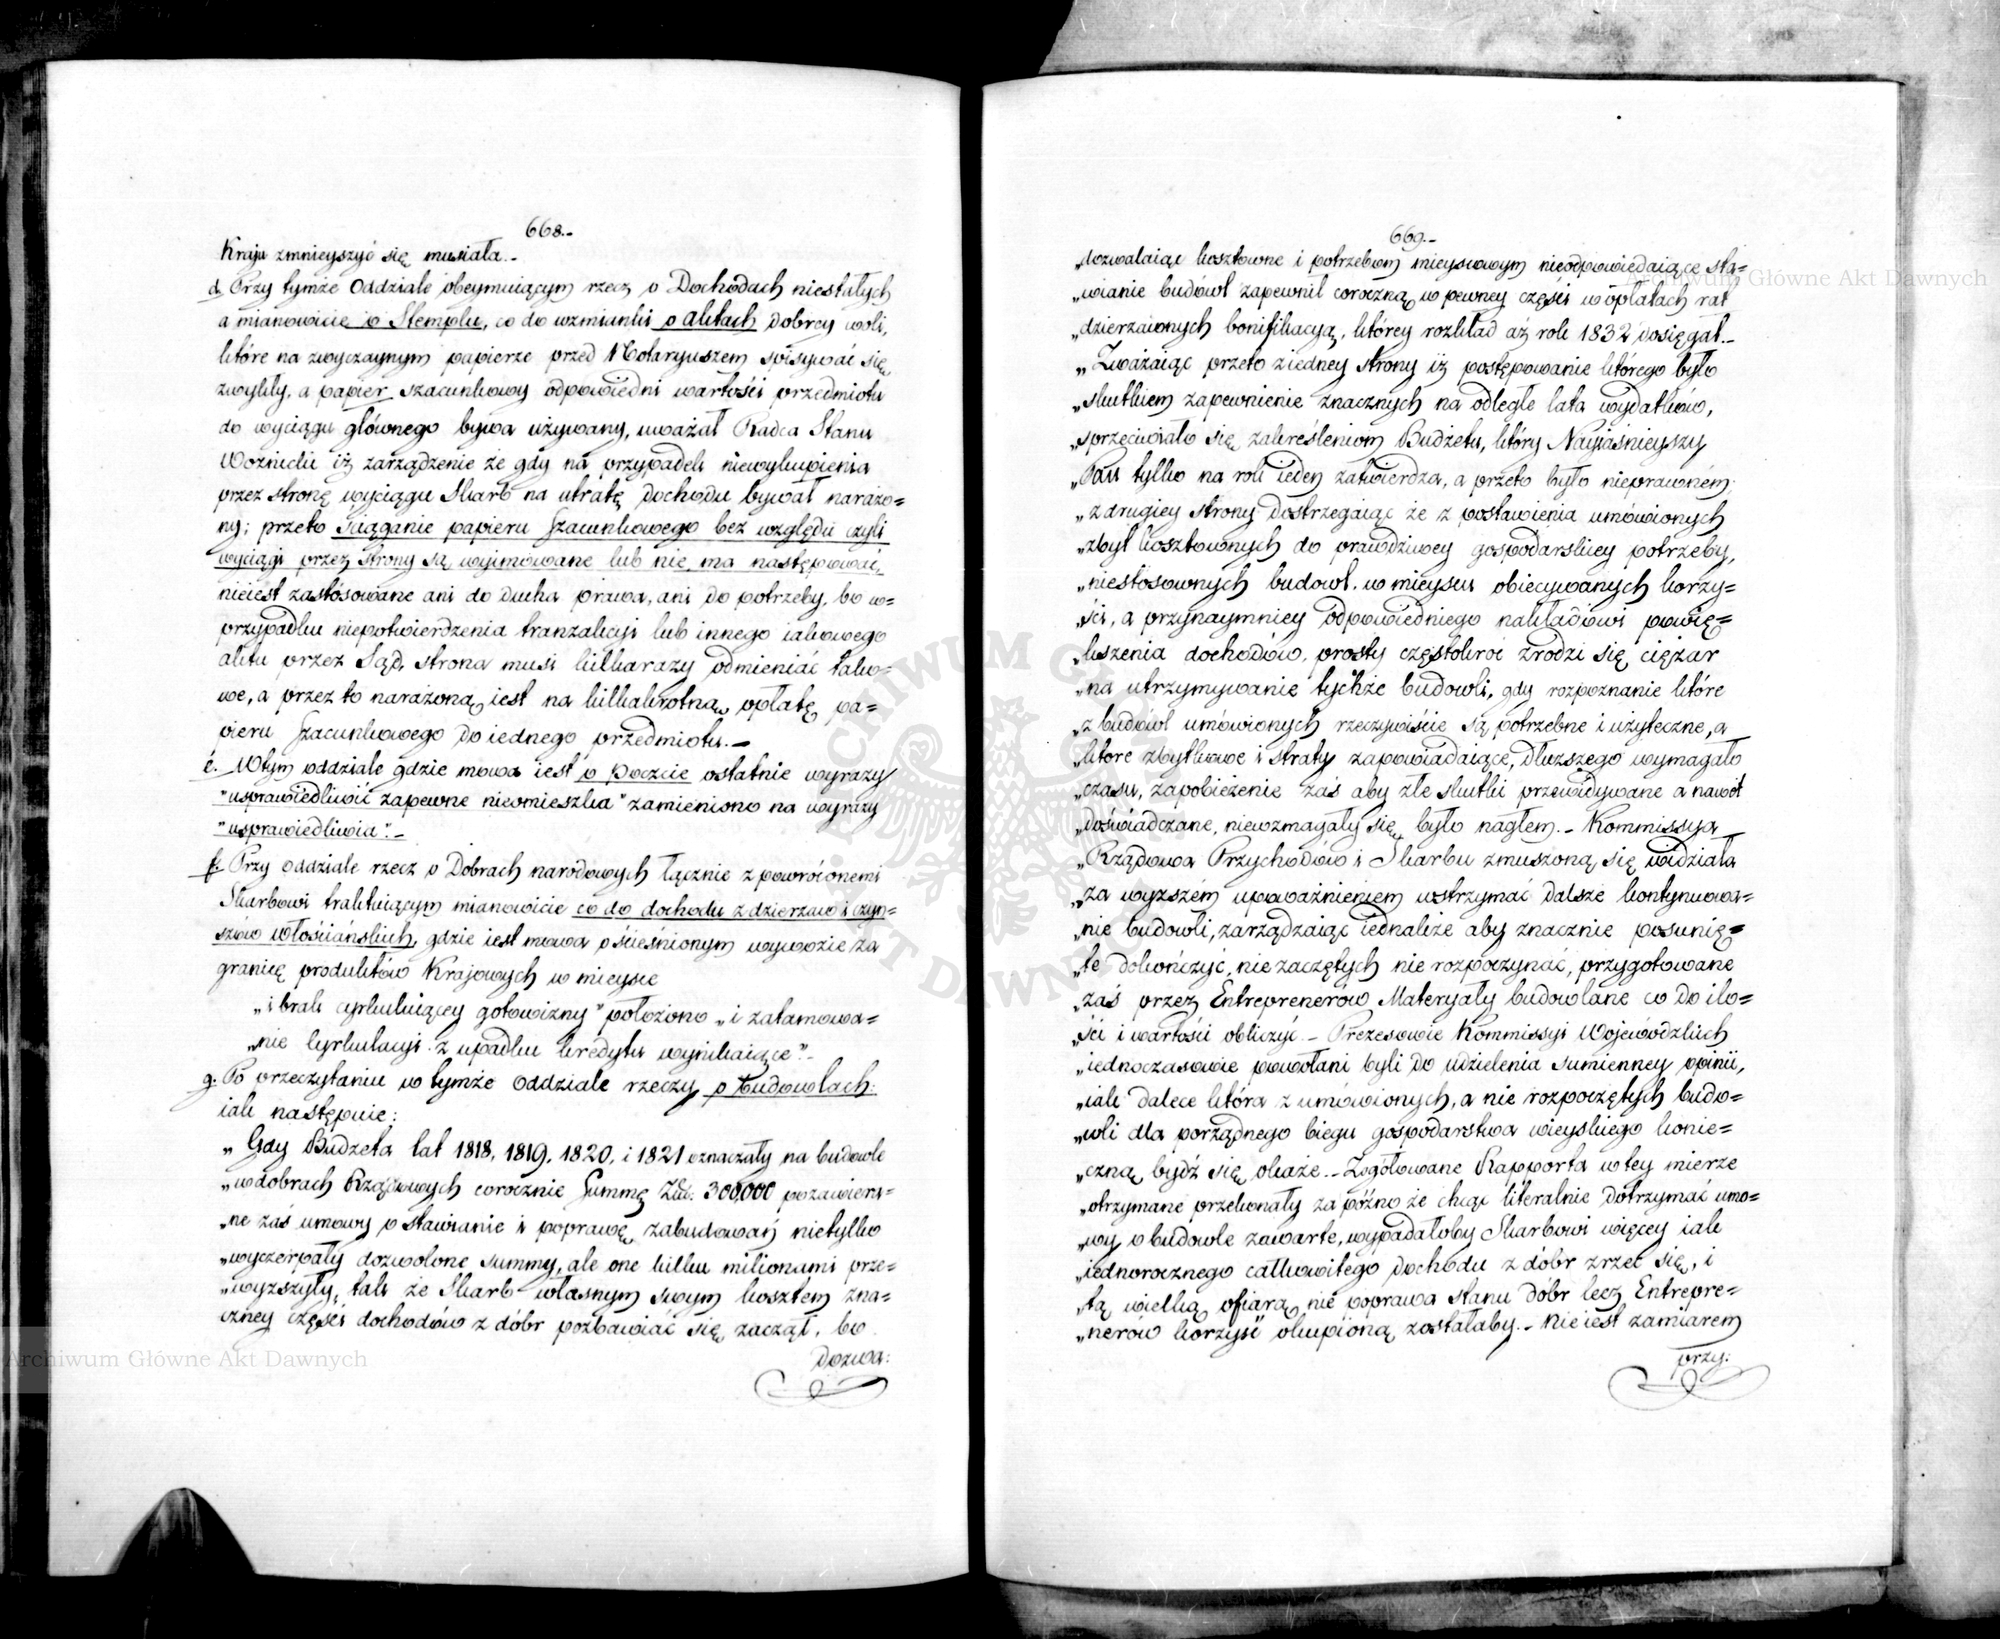 668.-
Kraju zmnieyszyć się musiała.-
d. Przy tymże Oddziale obeymuiącym rzecz o Dochodach niestałych
a mianowicie o Stemplu, co do wzmianki o aktach dobrey woli,
które na zwyczaynym papierze przed Notaryuszem spisywać się
zwykły, a papier szacunkowy odpowiedni wartości przedmiotu
do wyciągu głównego bywa używany, uważał Radca Stanu
Woznicki iż zarządzenie że gdy na przypadek niewykupienia
przez stronę wyciągu Skarb na utratę dochodu bywał narażo=
ny; przeto ściąganie papieru Szacunkowego bez względu czyli
wyciągi przez strony są wyimowane lub nie, ma następować,
nieiest zastósowane ani do ducha prawa, ani do potrzeby, bo w=
przypadku niepotwierdzenia tranzakcyi lub innego iakowego
aktu przez Sąd, strona musi kilkarazy odmieniać tako=
we, a przez to narażoną iest na kilkakrotną opłatę pa=
pieru Szacunkowego do iednego przedmiotu.-
e. W tym oddziale gdzie mowa iest o Poczcie ostatnie wyrazy
"usprawiedliwić zapewne nieomieszka" zamieniono na wyrazy
"usprawiedliwia".-
f. Przy Oddziale rzecz o Dobrach narodowych łącznie z powróconemi
Skarbowi traktuiącym mianowicie co do dochodu z dzierzaw i czyn=
szów włościańskich, gdzie iest mowa o ścieśnionym wywozie za
granicę produktów Krajowych w mieysce
„i brak cyrkuluiącey gotowizny" położono „i zatamowa=
„nie Cyrkulacyi z upadku kredytu wynikaiące".-
g. Po przeczytaniu w tymże Oddziale rzeczy o budowlach:
iak następuie:
„Gdy Budzeta lat 1818, 1819, 1820, i 1821 oznaczały na budowle
„w dobrach Rządowych corocznie Summę Złt. 300,000 pozawiera=
„ne zaś umowy o stawianie i poprawę zabudowań nietylko
„wyczerpały dozwolone summy, ale one kilku milionami prze=
„wyzszyły, tak że Skarb własnym swym kosztem zna=
czney części dochodów z dóbr pozbawiać się zaczął, bo
dozwa:
669.-
„dozwalaiąc kosztowne i potrzebom mieyscowym nieodpowiedaiące sta=
„wianie budowl zapewnił coroczną w pewney części w opłatach rat
„dzierzawnych bonifikacyą, którey rozkład aż rok 1832 dosięgał.-
„Zważaiąc przeto z iedney strony iż postępowanie którego było
„skutkiem zapewnienie znacznych na odległe lata wydatków,
„sprzęciwiało się zakreśleniom Budżetu, który Nayiaśnieyszy
„Pan tylko na rok ieden zatwierdza, a przeto było nieprawném;
„z drugiey strony dostrzegaiąc że z postawienia umówionych
„zbyt kosztownych do prawdziwey gospodarskiey potrzeby,
„niestosownych budowl, w mieyscu obiecywanych korzy=
„ści, a przynaymniey odpowiedniego nakładowi powię=
„kszenia dochodów, prosty częstokroć zrodzi się ciężar
„na utrzymywanie tychże budowli, gdy rozpoznanie które
„z budowl umówionych rzeczywiście są potrzebne i użyteczne, a
„które zbytkowe i straty zapowiadaiące, dłuższego wymagało
„czasu, zapobieżenie zaś aby złe skutki przewidywane a nawet
„doświadczane, niewzmagały się, było nagłem.- Kommissya
„Rządowa Przychodów i Skarbu zmuszoną się widziała
„za wyzszém upoważnieniem wstrzymać dalsze kontynuowa=
„nie budowli, zarządzaiąc iednakże aby znacznie posunię=
„te dokończyć, nie zaczętych nie rozpoczynać, przygotowane
„zaś przez Entreprenerów Materyały budowlane co do ilo=
„ści i wartości obliczyć.- Prezesowie Kommissyi Wojewódzkich
„iednoczasowie powołani byli do udzielenia sumienney opinii,
„iak dalece która z umówionych, a nie rozpoczętych budo=
„wli dla porządnego biegu gospodarstwa wieyskiego konie=
„czną bydź się okaże.- Zgotowane Rapporta w tey mierze
„otrzymane przekonały za późno że chcąc literalnie dotrzymać umo=
„wy o budowle zawarte, wypadałoby Skarbowi więcey iak
„iednorocznego całkowitego dochodu z dóbr zrzec się, i
„tą wielką ofiarą nie poprawa stanu dóbr lecz Entrepre=
„nerów korzyść okupioną zostałaby.- Nie iest zamiarem
przy:
Archiwum Główne Akt Dawnych
Archiwum Główne Akt Dawnych